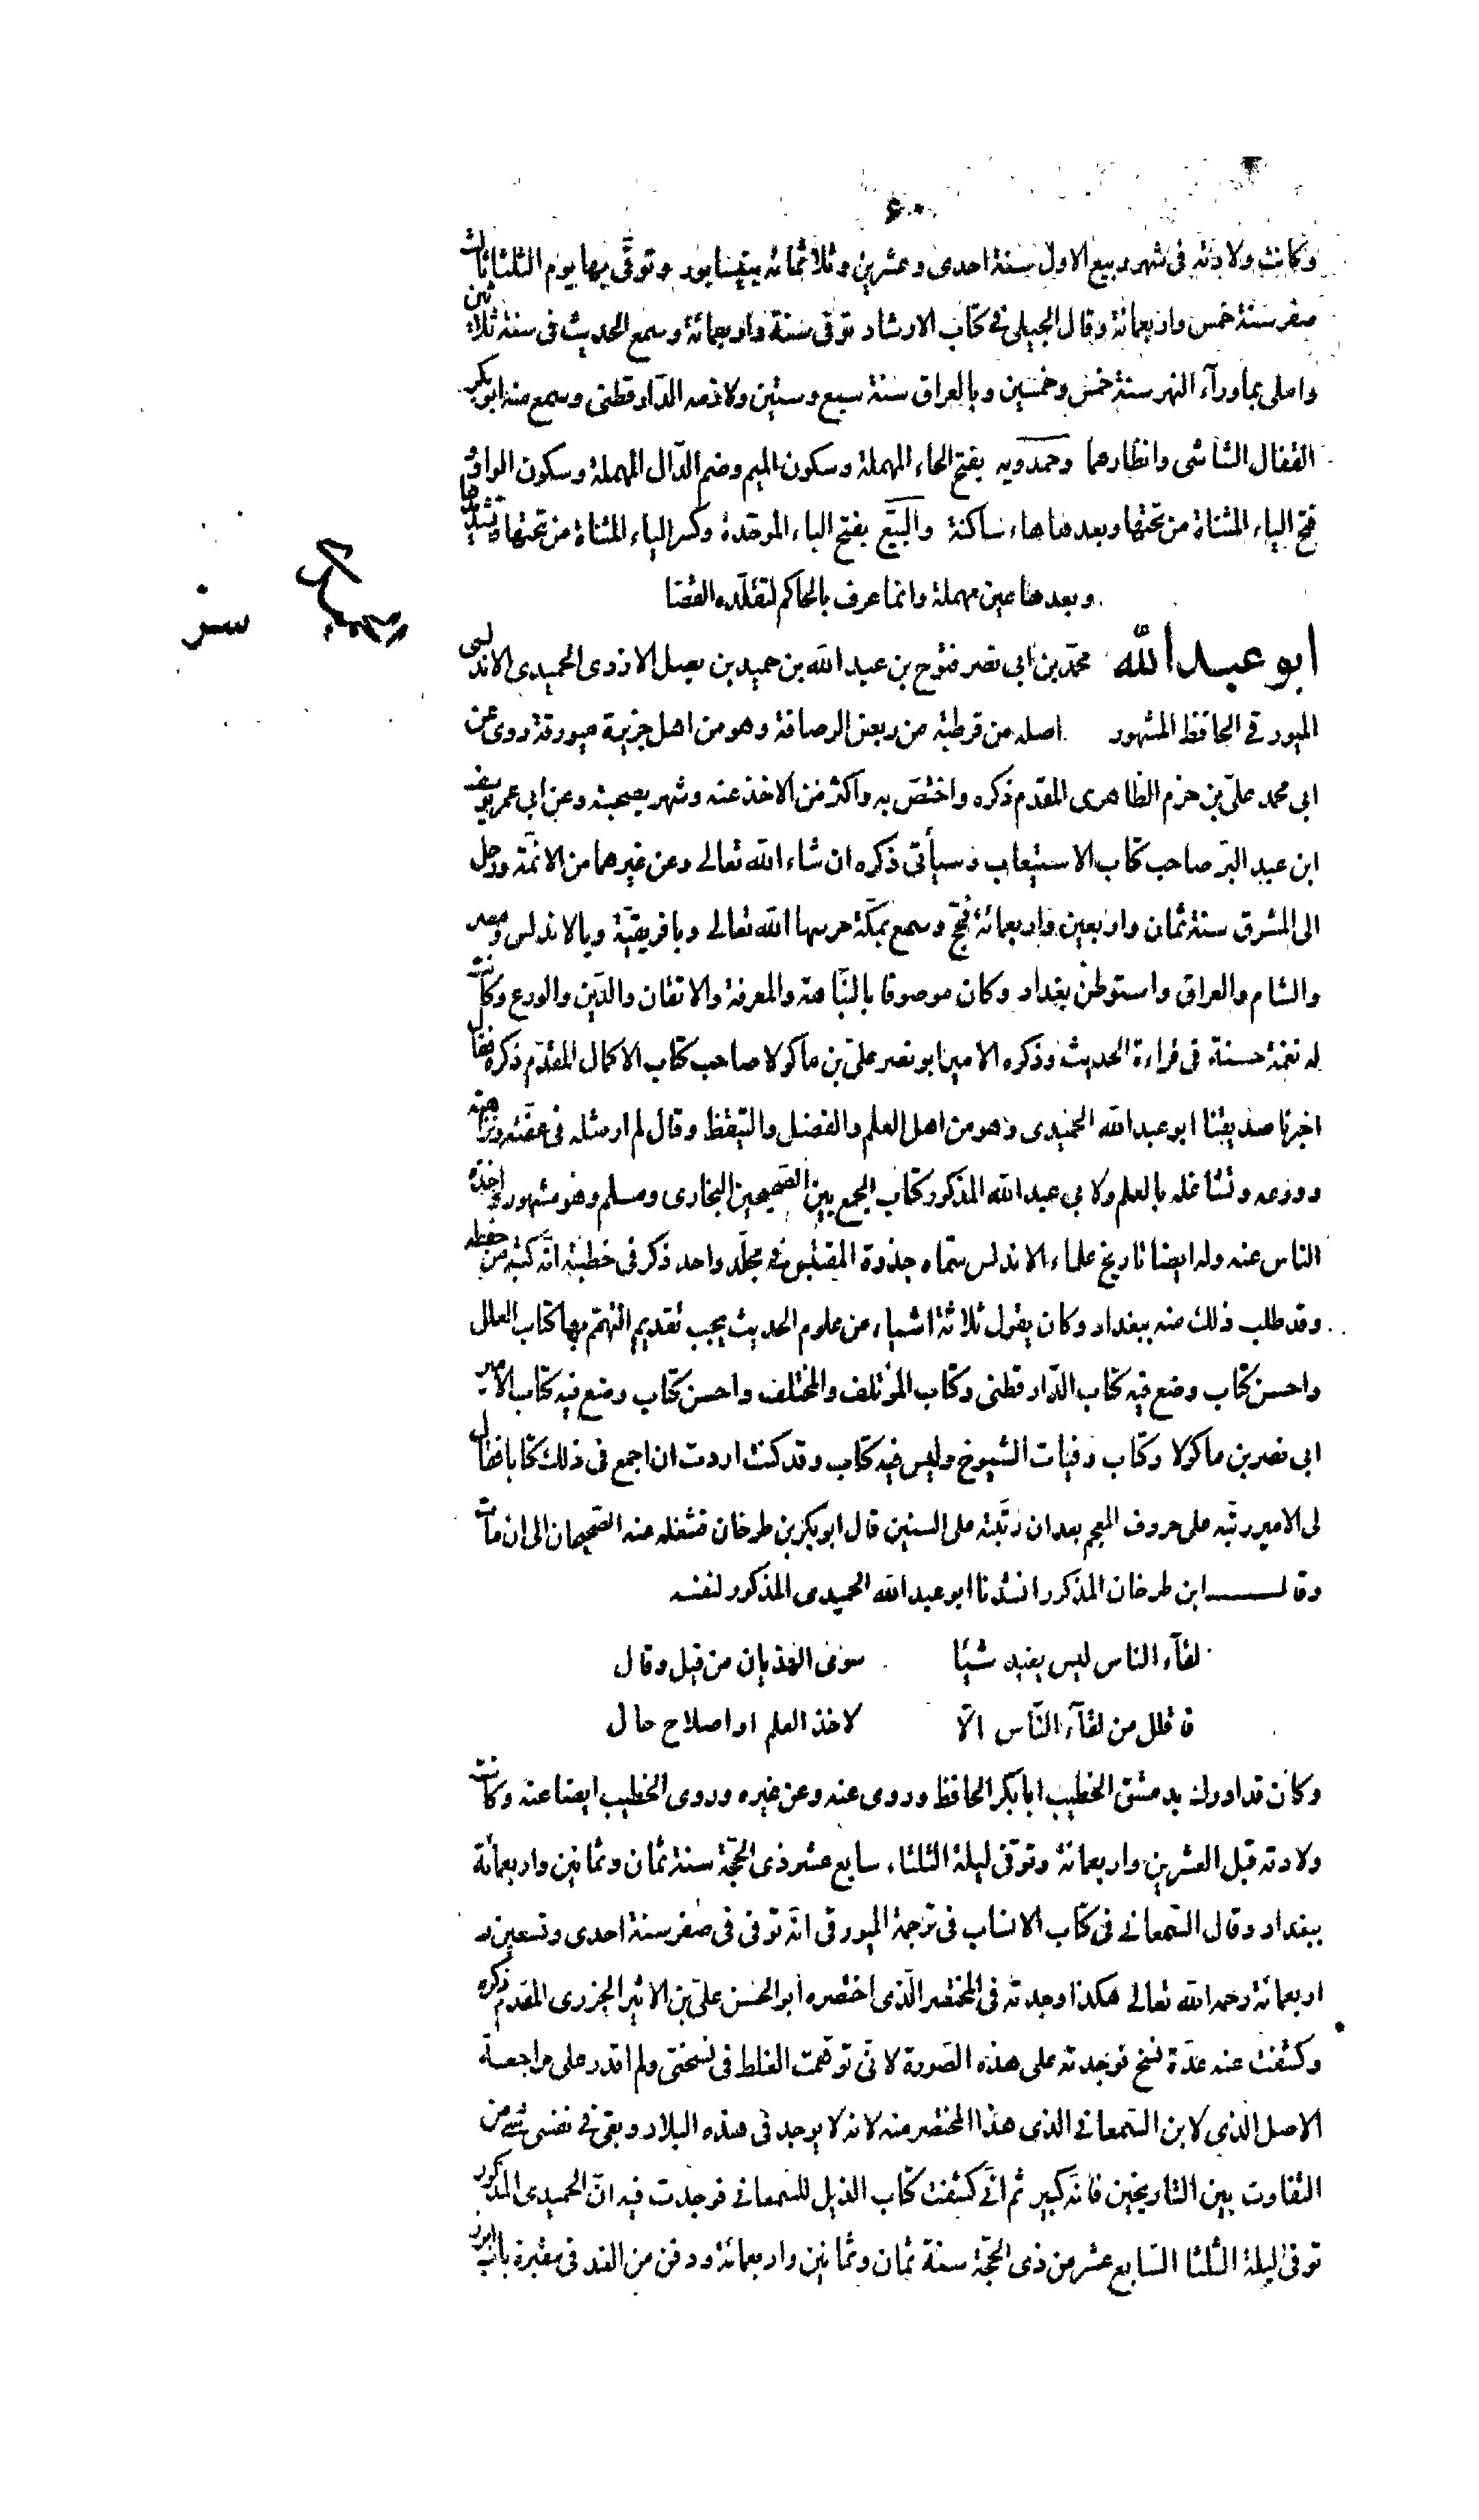 وكانت ولادته فى شهر ربيع الاول سنة احدى وعشرين وثلاثمائه بنيسابور وتوفى بها يوم الثلثا ثالث
صفر سنة خمس واربعمائة وقال الجيلى فى كتاب الارشاد توفى سنة واربعمائة وسمع الحديث فى سنة ثلاثين
واملى بماورآء النهر سنة خمس وخمسين وبالعراق سنة سبع وستين ولازمه الدّارقطنى وسمع منه ابو بكر
القفال الشاشى وانظارهما وحمدويه بفتح الحاء المهملة وسكون الميم وضم الدّال المهملة وسكون الواو و
فتح الياء المثناة من تحتها وبعدها هاء ساكنة والبيّع بفتح الباء الموحّدة وكسر الياء المثناة من تحتها وتشديدها
وبعدها عين مهملة وانما عرف بالحاكم لتقلّده القضا
ابو عبد الله محمّد بن ابى نصر فتوح بن عبد الله بن حميد بن يصل الازدى الحميدى الاندلسى
الميورقى الحافظ المشهور اصله من قرطبة من ربض الرصافة وهو من اهل جزيرة ميورقة روى عن
ابى محمد علىّ بن حزم الظاهرى المقدم ذكره واختصّ به واكثر من الاخذ عنه وشهر بصحبته وعن ابى عمر يوسف
ابن عبد البر صاحب كتاب الاستيعاب وسيأتى ذكره ان شاء الله تعالى وعن غيرهما من الائمّة ورحل
الى المشرق سنة ثمان واربعين واربعمائة فحجّ وسمع بمكّة حرسها الله تعالى وبافريقيّة وبالاندلس ومصر
والشام والعراق واستوطن بغداد وكان موصوفا بالنّباهة والمعرفة والاتقان والدّين والورع وكانت
له نغمة حسنة فى قراءة الحديث وذكره الامير ابو نصر علىّ بن ماكولا صاحب كتاب الاكمال المقدّم ذكره فقال
اخبرنا صديقنا ابو عبد الله الحميدى وهو من اهل العلم والفضل والتيقظ وقال لم ار مثله فى عفّته ونزاهته
وورعه وتشاغله بالعلم ولابى عبد الله المذكور كتاب الجمع بين الصحيحين البخارى ومسلم وهو مشهور واخذه
الناس عنه وله ايضا تاريخ علماء الاندلس سمّاه جذوة المقتبس فى مجلّد واحد ذكر فى خطبته انّه كتبه من حفظه
وقد طلب ذلك منه ببغداد وكان يقول ثلاثة اشياء من علوم الحديث يجب تقديم التهمّم بها كتاب العلل
واحسن كتاب وضع فيه كتاب الدّارقطنى وكتاب المؤتلف والمختلف واحسن كتاب وضع فيه كتاب الامير
ابى نصر بن ماكولا وكتاب وفيات الشيوخ وليس فيه كتاب وقد كنت اردت ان اجمع فى ذلك كتابا فقال
لى الامير رتّبه على حروف المعجم بعد ان رتّبته على السنين قال ابو بكر بن طرخان فشغله عنه الصحيحان الى ان مات
وقال ابن طرخان المذكور انشدنا ابو عبد الله الحميدى المذكور لنفسه
لقآء الناس ليس يفيد شيئا سوى الهذيان من قيل وقال
فاقلل من لقآء النّاس الّا لاخذ العلم او اصلاح حال
وكان قد ادرك بدمشق الخطيب ابا بكر الحافظ وروى عنه وعن غيره وروى الخطيب ايضا عنه وكانت
ولادته قبل العشرين واربعمائة وتوفى ليلة الثلثاء سابع عشر ذى الحجّة سنة ثمان وثمانين واربعمائة
ببغداد وقال السّمعانى فى كتاب الانساب فى ترجمة الميورقى انّه توفى فى صفر سنة احدى وتسعين و
اربعمائة رحمه الله تعالى هكذا وجدته فى المختصر الّذى اختصره ابو الحسن علىّ بن الاثير الجزرى المقدم ذكره
وكشفت عنه عدّة نسخ فوجدته على هذه الصّورة لانّى توهّمت الغلط فى نسختى ولم اقدر على مراجعة
الاصل الّذى لابن السّمعانى الذى هذا المختصر منه لانه لا يوجد فى هذه البلاد وبقى فى نفسى شئ من
التفاوت بين التاريخين فانّه كبير ثم انّى كشفت كتاب الذيل للسّمعانى فوجدت فيه انّ الحميدى المذكور
توفى ليلة الثلثا السّابع عشر من ذى الحجّة سنة ثمان وثمانين واربعمائة ودفن من الغد فى مقبرة باب ابرز